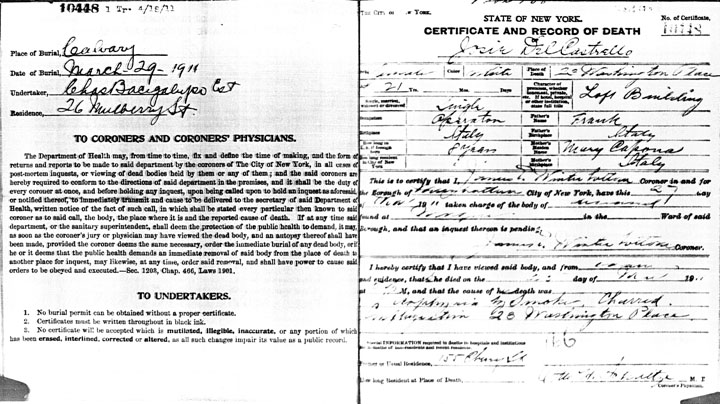 10448
1 Tr. 4/25/11
Place of Burial, Calvary
Date of Burial, March 29 - 1911
Undertaker, Chas Bacigalupo Est
Residence, 26 Mulberry St.
TO CORONERS AND CORONERS' PHYSICIANS.
The Department of Health may, from time to time, fix and define the time of making, and the form of
returns and reports to be made to said department by the coroners of The City of New York, in all cases of
post-mortem inquests, or viewing of dead bodies held by them or any of them; and the said coroners are
hereby required to conform to the directions of said department in the premises, and it shall be the duty of
every coroner at once, and before holding any inquest, upon being called upon to hold an inquest as aforesaid,
or notified thereof, to immediately transmit and cause to be delivered to the secretary of said Department of
Health, written notice of the fact of such call, in which shall be stated every particular then known to said
coroner as to said call, the body, the place where it is and the reported cause of death. If at any time said
department, or the sanitary superintendent, shall deem the protection of the public health to demand, it may,
as soon as the coroner's jury or physician may have viewed the dead body, and an autopsy thereof shall have
been made, provided the coroner deems the same necessary, order the immediate burial of any dead body, or if
he or it deems that the public health demands an immediate removal of said body from the place of death to
another place for inquest, may likewise, at any time, order said removal, and shall have power to cause said
orders to be obeyed and executed.—Sec. 1203, Chap. 466, Laws 1901.
TO UNDERTAKERS.
1. No burial permit can be obtained without a proper certificate.
2. Certificates must be written throughout in black ink.
3. No certificate will be accepted which is mutilated, illegible, inaccurate, or any portion of which
has been erased, interlined, corrected or altered, as all such changes impair its value as a public record.
STATE OF NEW YORK.
No. of Certificate,
10448
CERTIFICATE AND RECORD OF DEATH
OF
Josie Del Castrello
Color White Place of Death 23 Washington Place
21 Yrs. Mos. Days
Character of premises, whether tenement, private, etc. If hotel, hospital or other institution, state full title
Loft Building
Single
Operator Father's Name Frank
Italy Father's Birthplace Italy
Mother's Name Mary Capona
Mother's Birthplace Italy
This is to certify that I, Winterbottom Coroner in and for
Borough of City of New York, have this 27 day
1911 taken charge of the body of deceased
found at in the Ward of said
Borough, and that an inquest thereon is pending.
Winterbottom Coroner.
I hereby certify that I have viewed said body, and from
and evidence, that he died on the day of Mar 191
M, and that the cause of he death was
Asphyxia by Smoke, Charred
23 Washington Place
Special INFORMATION required in deaths in hospitals and institutions
and in deaths of non-residents and recent residents.
Former or Usual Residence, 155 St
How long Resident at Place of Death,
M. D.
Coroner's Physician.